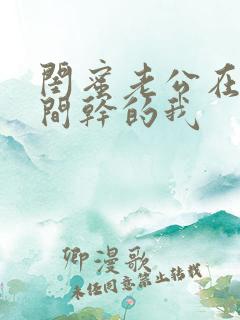 閨蜜老公在
間幹的我
卿漫歌
未经同意禁止转载